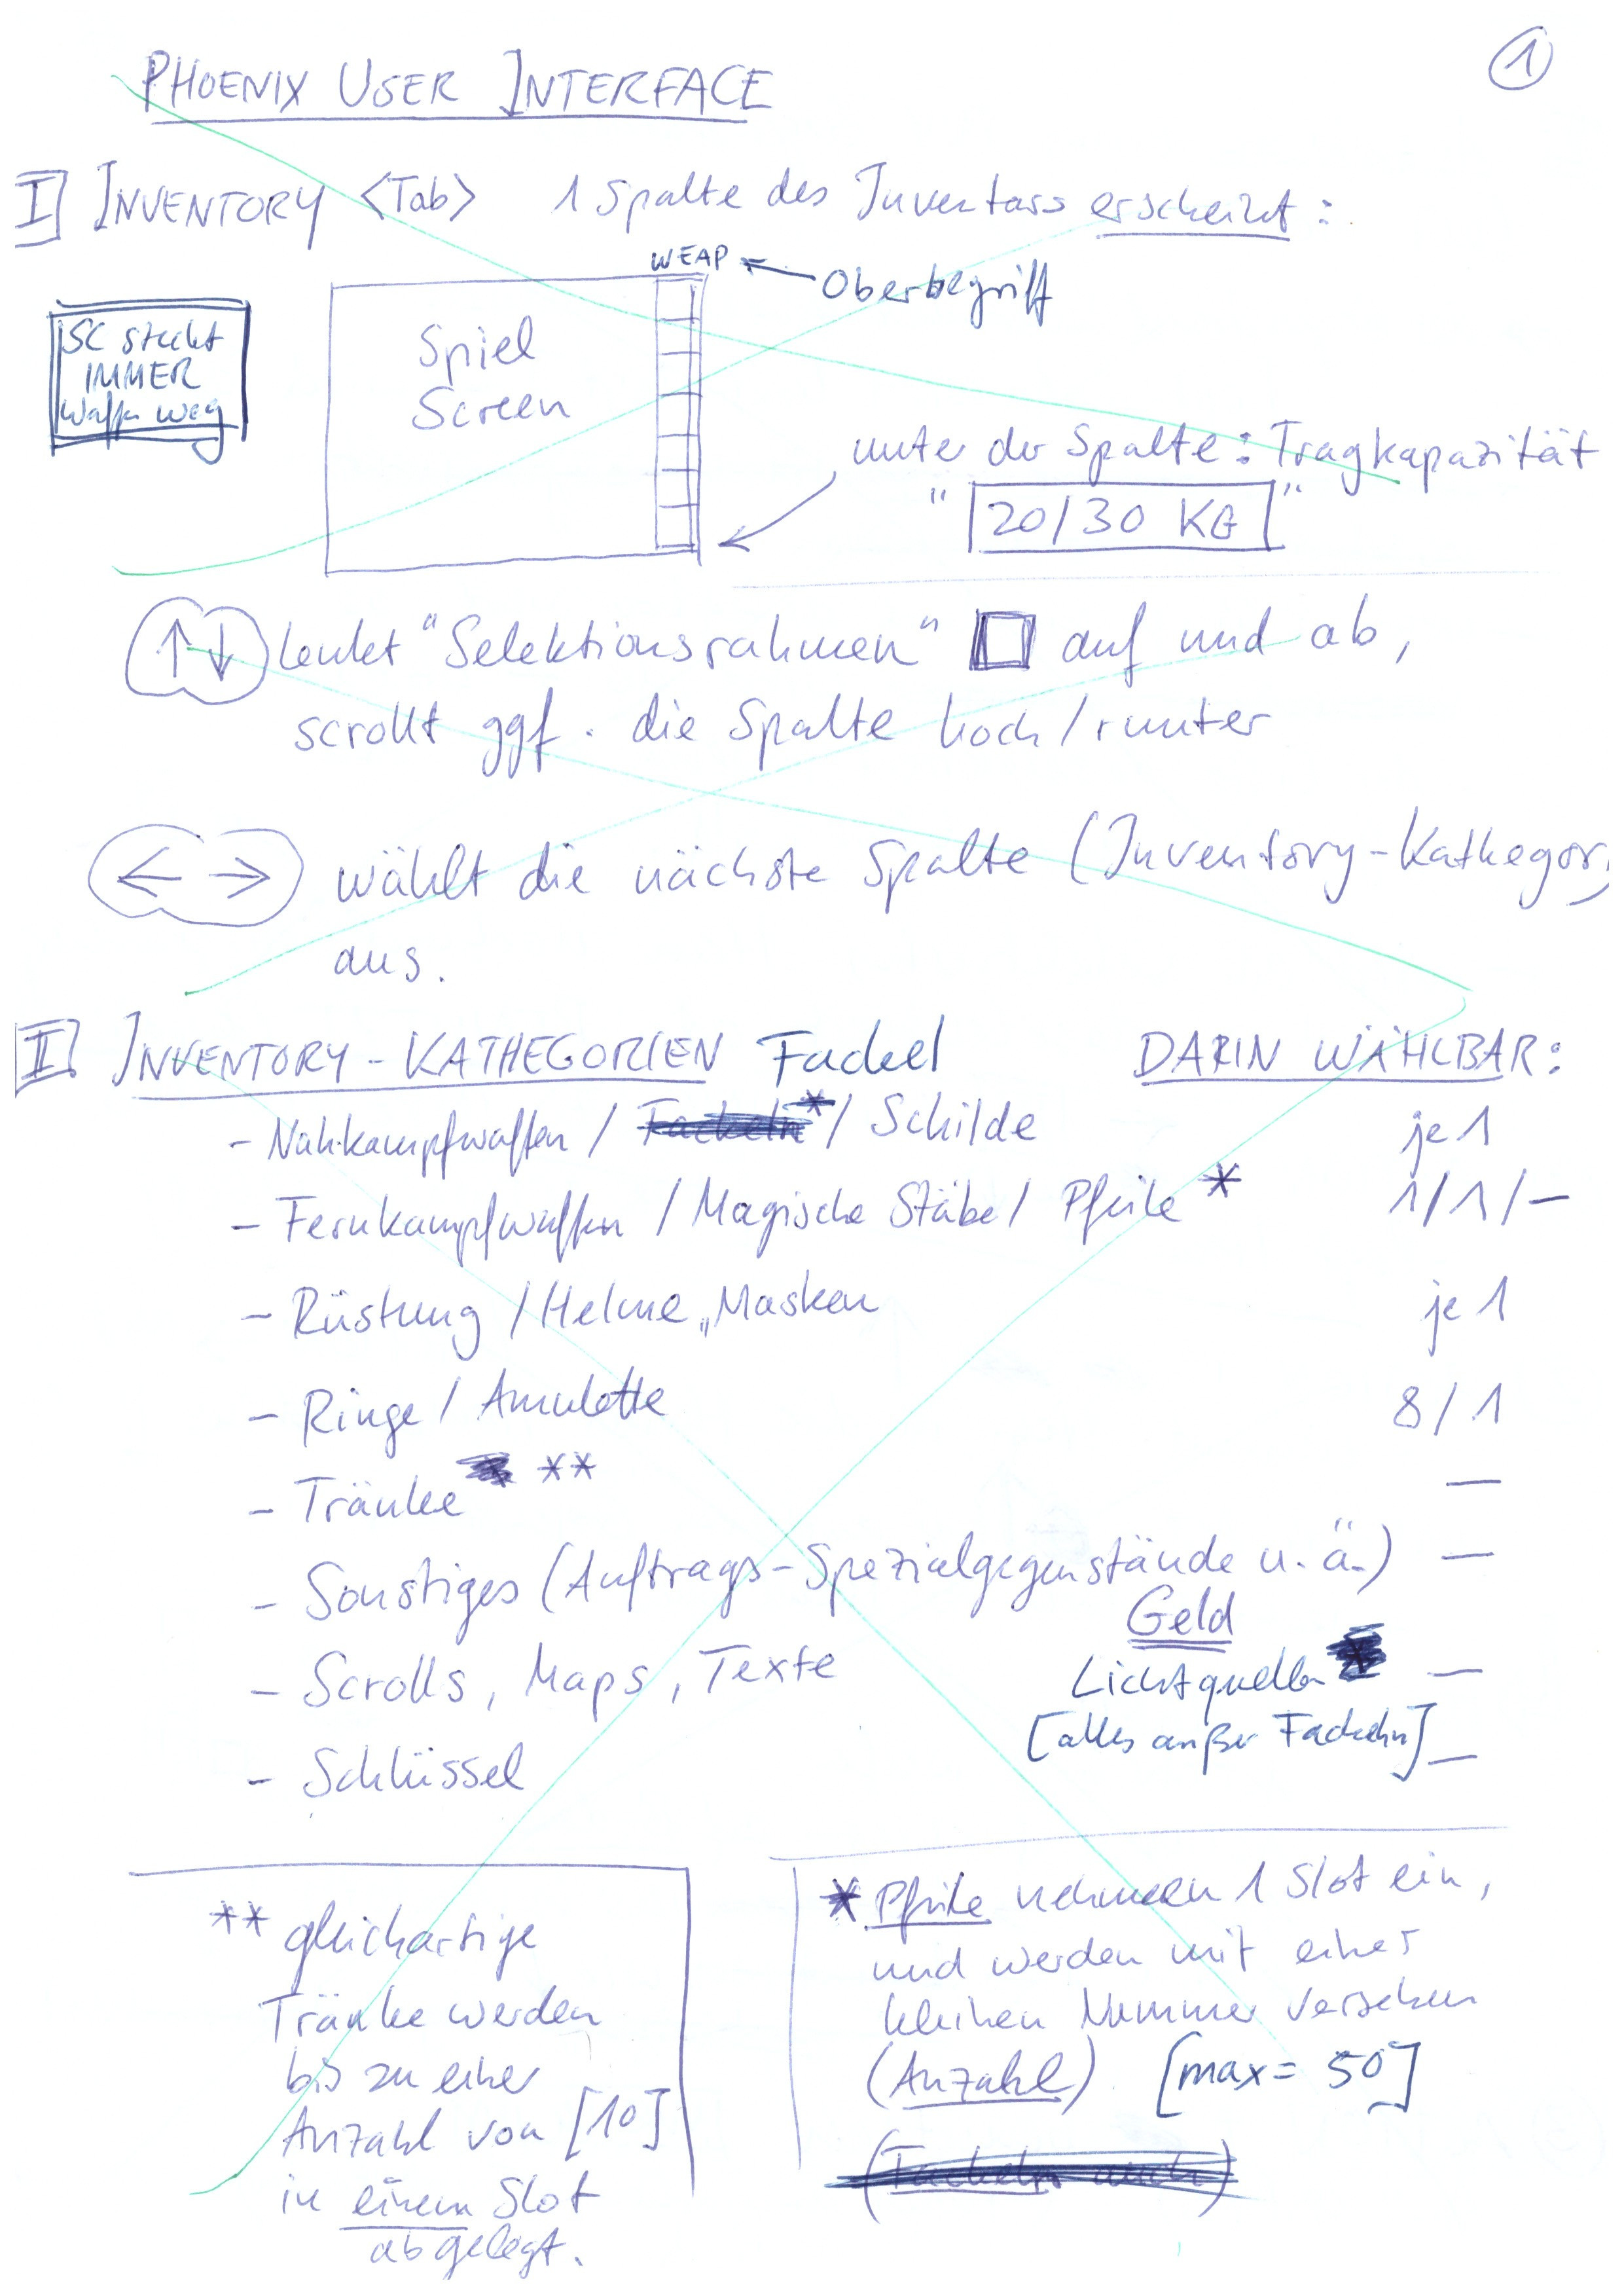 PHOENIX USER INTERFACE
1
I INVENTORY <Tab> 1 Spalte des Inventars erscheint:
WEAP
Oberbegriff
SC steckt
IMMER
Waffe weg
Spiel
Screen
unter der Spalte: Tragkapazität
" 20/30 KG "
↑↓ lenkt "Selektionsrahmen" auf und ab,
scrollt ggf. die Spalte hoch/runter
← → wählt die nächste Spalte (Inventory-Kathegor
aus.
II INVENTORY-KATHEGORIEN Fackel DARIN WÄHLBAR:
- Nahkampfwaffen / Fackeln* / Schilde je 1
- Fernkampfwaffen / Magische Stäbe / Pfeile * 1/1/-
- Rüstung / Helme, Masken je 1
- Ringe / Amulette 8/1
- Tränke ** —
- Sonstiges (Auftrags-Spezialgegenstände u.ä.) —
Geld
- Scrolls, Maps, Texte
Lichtquellen —
[alles außer Fackeln] —
- Schlüssel
** gleichartige
Tränke werden
bis zu einer
Anzahl von [10]
in einem Slot
abgelegt.
* Pfeile nehmen 1 Slot ein,
und werden mit einer
kleinen Nummer versehen
(Anzahl) [max= 50]
(Fackeln auch)